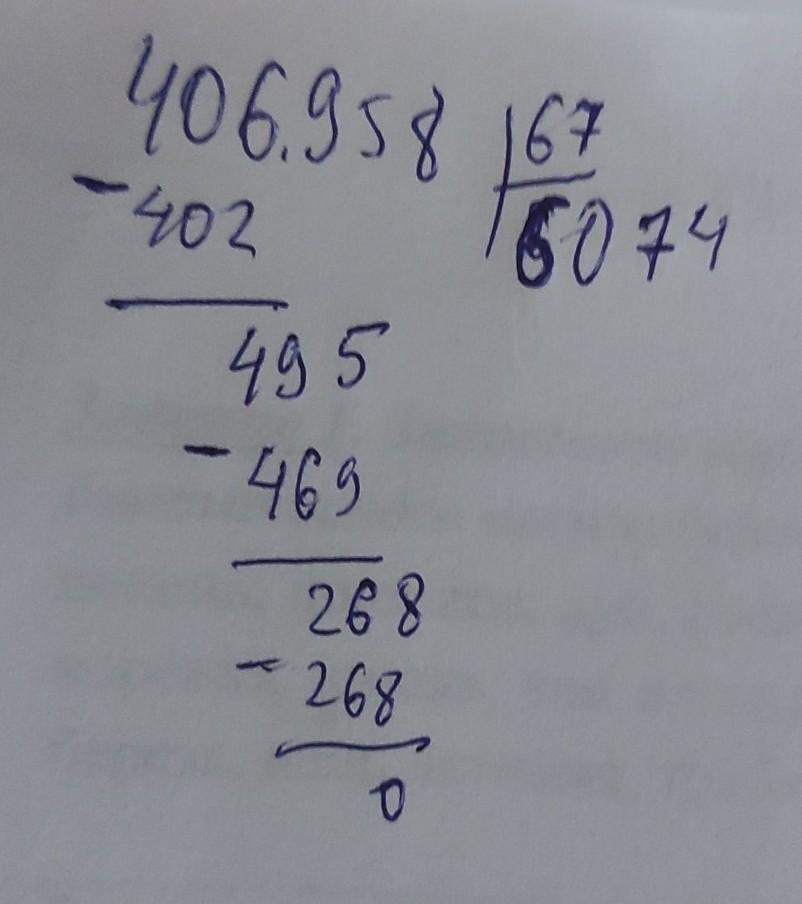 406.958 67
- 402 6074
495
- 469
268
- 268
0